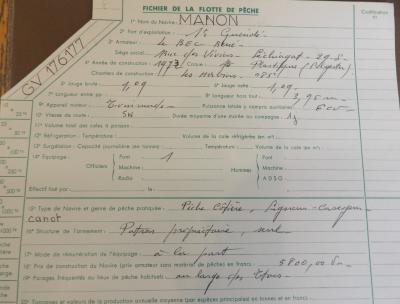 FICHIER DE LA FLOTTE DE PÊCHE
Codification
1° Nom du Navire : MANON
2° Port d'exploitation : St Guénolé
3° Armateur : Le BEC René
Siège social : Rue des Viviers - 29-S-
4° Année de construction : 1973 Coque : Plastique (Polyester)
Chantiers de construction :
5° Jauge brute : 1,09 6° Jauge nette : 1,09
7° Longueur entre pp : 8° Longueur hors tout :
9° Appareil moteur : Puissance totale y compris auxiliaires :
10° Vitesse de route : Durée moyenne d'une marée ou campagne : 1j
11° Volume total des cales à poisson :
12° Réfrigération : Température : Volume de la cale réfrigérée (en m³) :
13° Surgélation : Capacité journalière (en tonnes) : Température : Volume de la cale (en m³) :
14° Equipage : Officiers Pont 1 Hommes Pont
Machine Machine
Radio A D S G
Effectif fixé par : le :
GV 176177
15° Type de Navire et genre de pêche pratiquée : Pêche Côtière, Ligneur-Caseyeur
canot
16° Structure de l'armement : Patron propriétaire, seul
17° Mode de rémunération de l'équipage : à la part
18° Prix de construction du Navire (prix armateur sans matériel de pêche) en francs : 5800,00
19° Parages fréquentés ou lieux de pêche habituels : au large des
20° Tonnages et valeurs de la production annuelle moyenne (par espèces principales) en tonnes et en francs